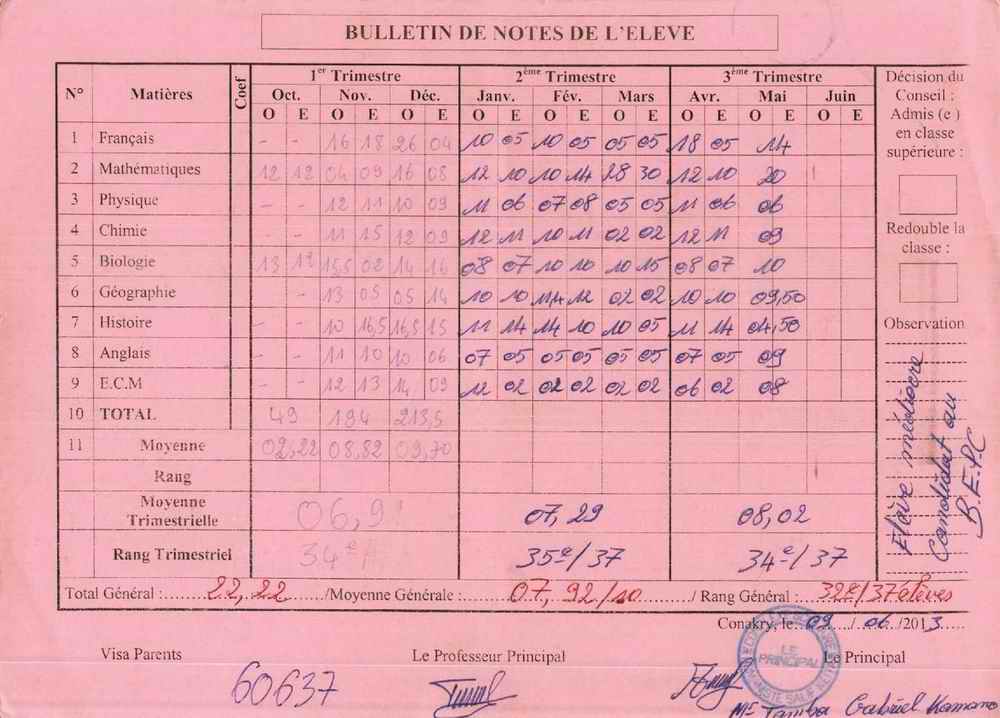 BULLETIN DE NOTES DE L'ELEVE
N° Matières Coef 1er Trimestre 2ème Trimestre 3ème Trimestre Décision du
Oct. Nov. Déc. Janv. Fév. Mars Avr. Mai Juin Conseil :
O E O E O E O E O E O E O E O E O E Admis (e )
en classe
supérieure :
1 Français - - 16 18 26 04 10 05 10 05 05 05 18 05 14
2 Mathématiques 12 12 04 09 16 08 12 10 10 14 28 30 12 10 20
3 Physique - - 12 11 10 09 11 06 07 08 05 05 11 06 06
4 Chimie - 11 15 12 09 12 11 10 11 02 02 12 11 09
Redouble la
classe :
5 Biologie 13 12 15,5 02 14 16 08 07 10 10 10 15 08 07 10
6 Géographie - 13 05 05 14 10 10 11,4 12 02 02 10 10 09,50
7 Histoire - - 10 16,5 16,5 15 11 14 14 10 10 05 11 14 04,50
Observation
8 Anglais - - 11 10 10 06 07 05 05 05 05 05 07 05 09
9 E.C.M - - 12 13 14 09 12 02 02 02 02 02 06 02 08
10 TOTAL 49 194 213,5
11 Moyenne 02,22 08,82 09,70
Rang
Moyenne
Trimestrielle 06,9 07,29 08,02
Rang Trimestriel 34e 35e/37 34e/37
Elève médiocre
Candidat au
B.E.P.C
Total Général : 22,22 /Moyenne Générale : 07,92/10 / Rang Général : 32e/37 élèves
Conakry, le: 09 / 06 /2013
Visa Parents Le Professeur Principal Le Principal
LE
PRINCIPAL
60637
Mr Tamba Gabriel Kamano